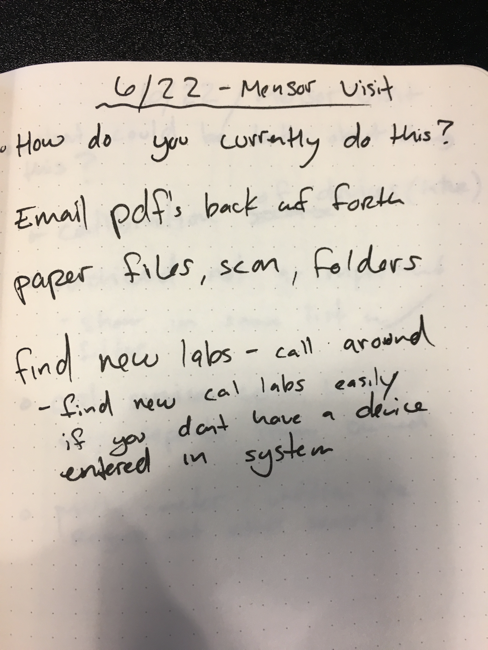 6/22 - Mensor Visit
• How do you currently do this?
Email pdf's back and forth
paper files, scan, folders
find new labs - call around
- find new cal labs easily
if you dont have a device
entered in system